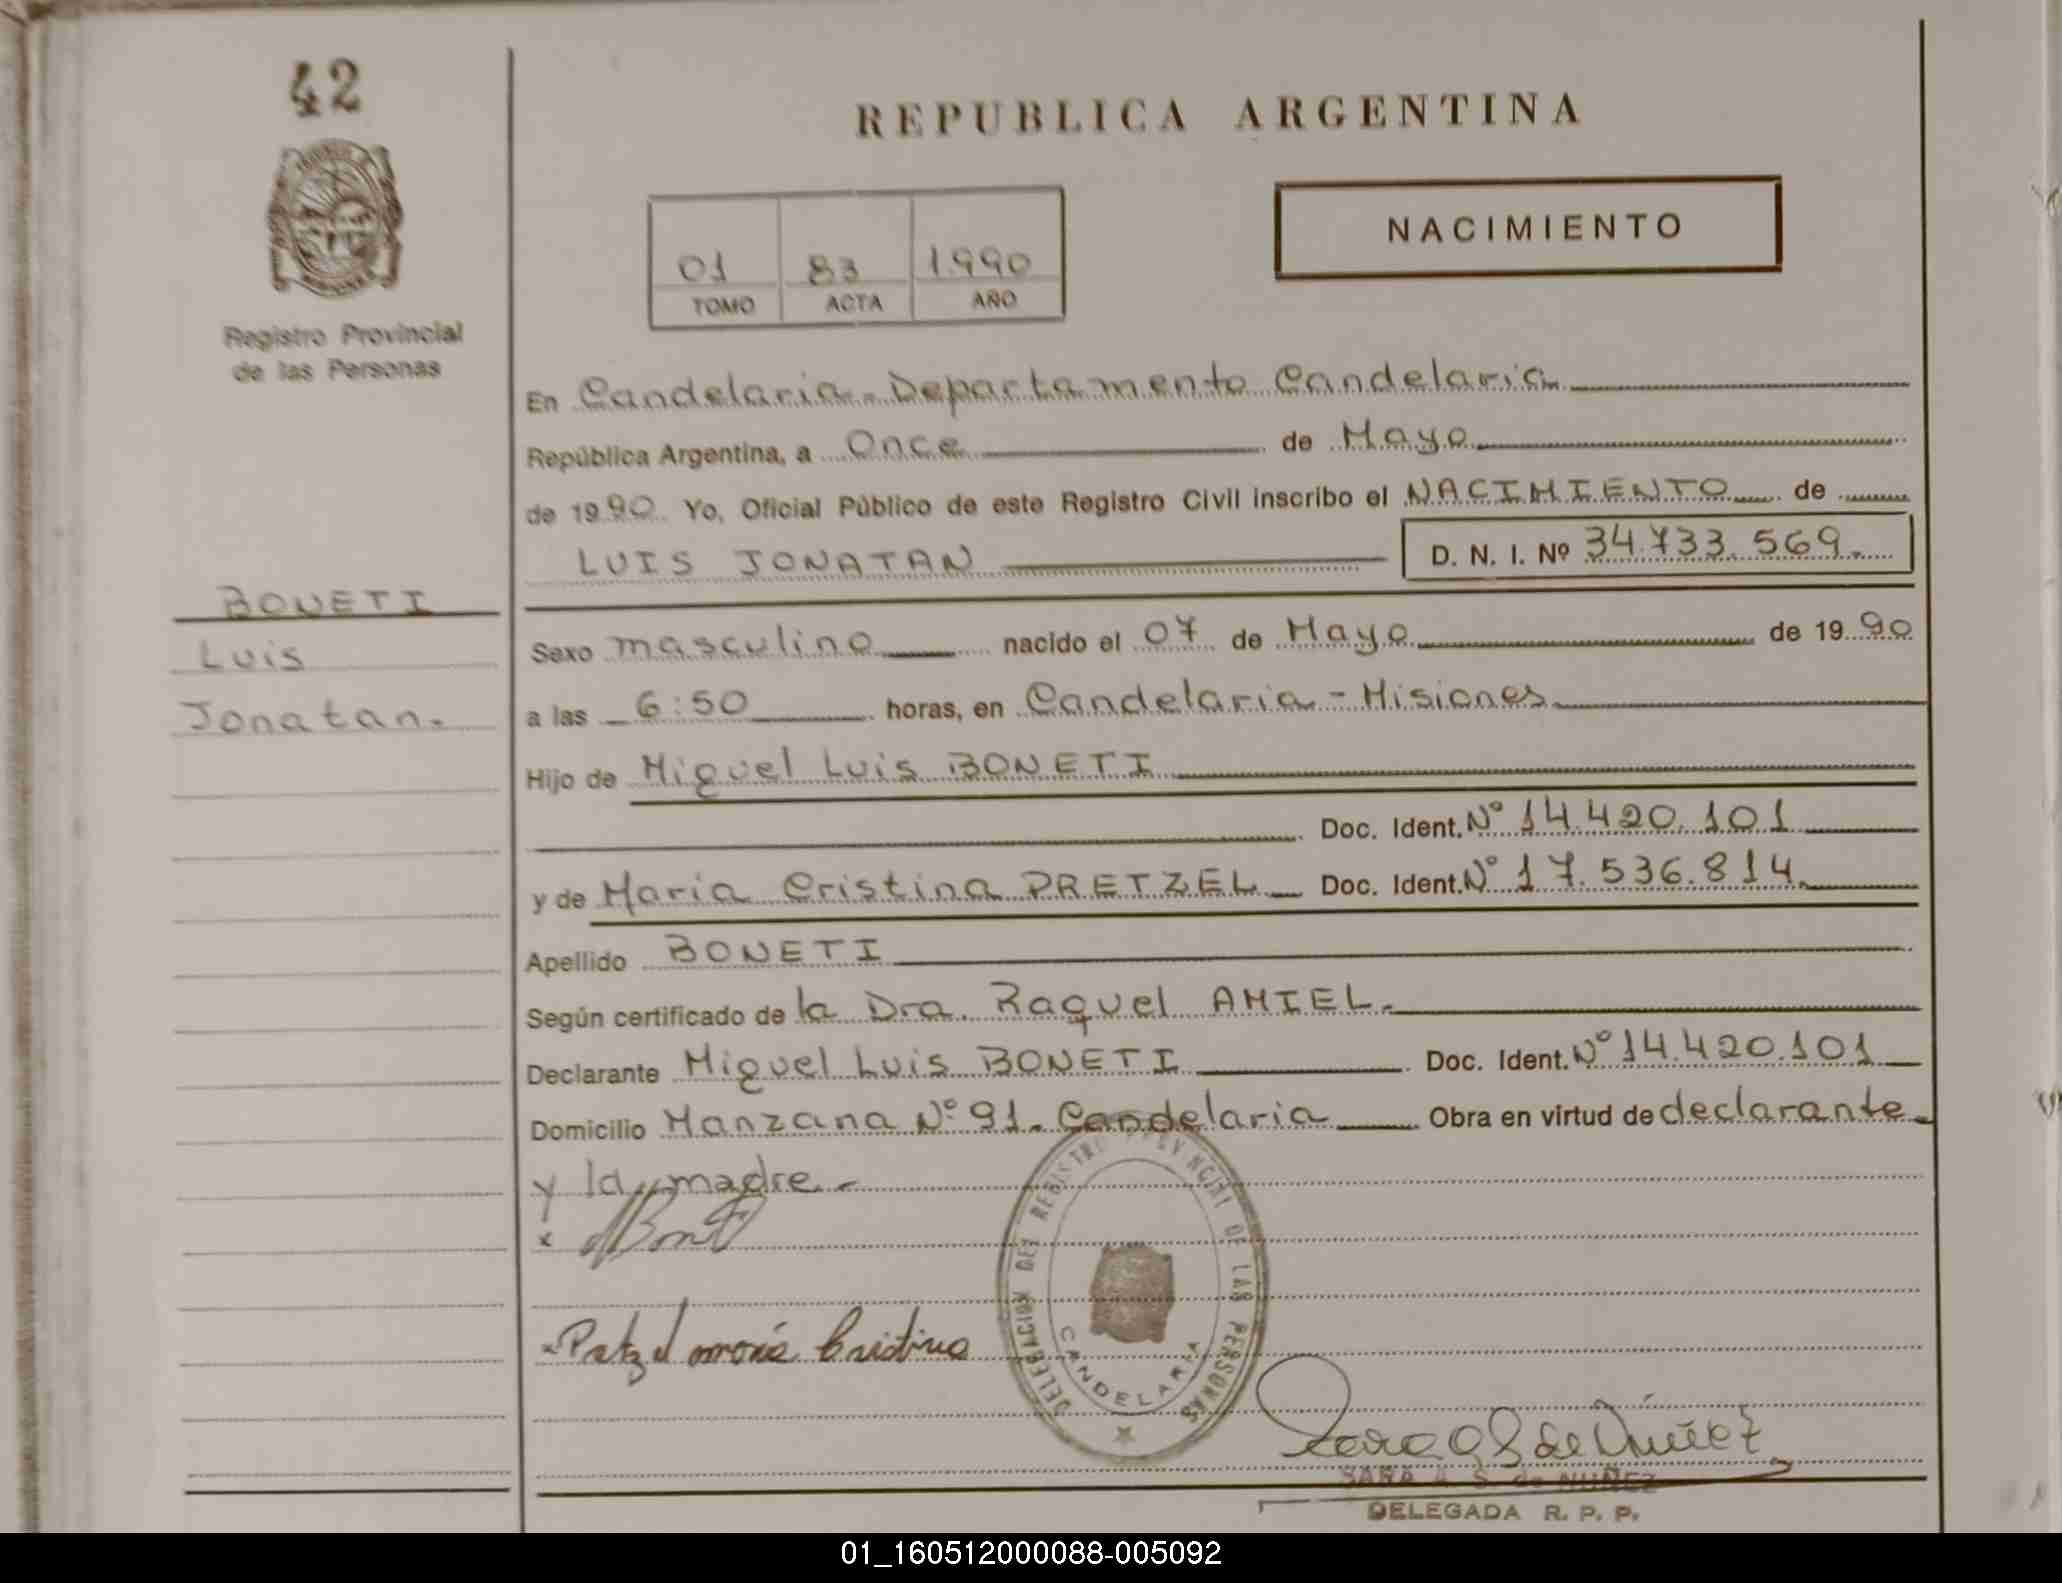 42
REPUBLICA ARGENTINA
01 83 1990
TOMO ACTA AÑO
NACIMIENTO
Registro Provincial
de las Personas
BONETI
Luis
Jonatan.
En Candelaria - Departamento Candelaria
República Argentina, a Once de Mayo
de 1990 Yo, Oficial Público de este Registro Civil inscribo el NACIMIENTO de
LUIS JONATAN D. N. I. Nº 34.733.569.
Sexo masculino nacido el 07 de Mayo de 1990
a las 6:50 horas, en Candelaria - Misiones
Hijo de Miguel Luis BONETI
Doc. Ident. Nº 14.420.101
y de Maria Cristina PRETZEL Doc. Ident. Nº 17.536.814.
Apellido BONETI
Según certificado de la Dra. Raquel AMIEL.
Declarante Miguel Luis BONETI Doc. Ident. Nº 14.420.101
Domicilio Manzana Nº 91. Candelaria Obra en virtud de declarante
y la madre.-
x
DELEGACION DEL REGISTRO PROVINCIAL DE LAS PERSONAS
CANDELARIA
Pretzel maria Cristina
Sara A S de Nuñez
SARA A. S. de NUÑEZ
DELEGADA R. P. P.
01_160512000088-005092